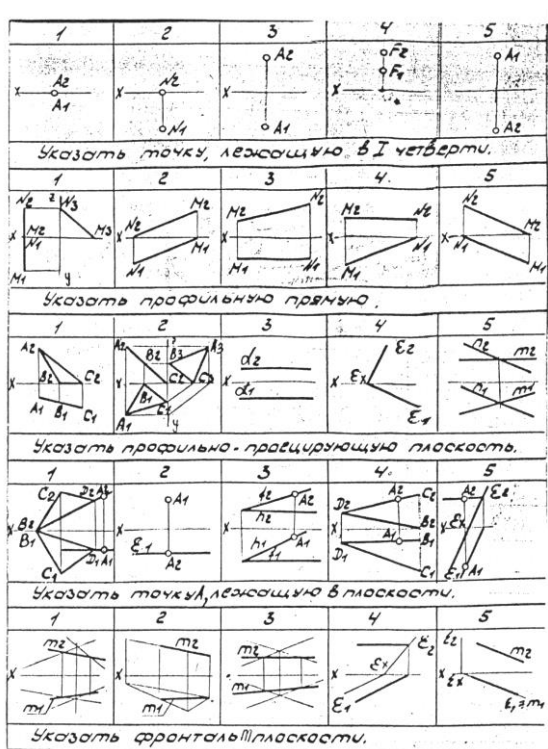 1 2 3 4 5
X A2 A1 X N2 N1 X A2 A1 X F2 F1 X A1 A2
Указать точку, лежащую в I четверти.
1 2 3 4 5
N2 Z N3 X M2 N1 M3 M1 y X N2 M2 N1 M1 X M2 N2 M1 N1 X M2 N2 N1 M1 X N2 N1 M2 M1
Указать профильную прямую.
1 2 3 4 5
A2 X B2 C2 A1 B1 C1 A2 B2 B3 A3 X C2 B1 C1 A1 y X α2 α1 X Ex E2 E1 X n2 m2 n1 m1
Указать профильно-проецирующую плоскость.
1 2 3 4 5
C2 D2 A2 X B2 B1 D1 A1 C1 A1 X E1 A2 f2 A2 h2 X h1 A1 f1 A2 C2 D2 B2 X A1 B1 D1 C1 A2 E2 X Ex E1 A1
Указать точку A, лежащую в плоскости.
1 2 3 4 5
m2 X m1 m2 X m1 m2 X m1 E2 X Ex E1 E2 m2 X Ex E1≡m1
Указать фронталь m плоскости.